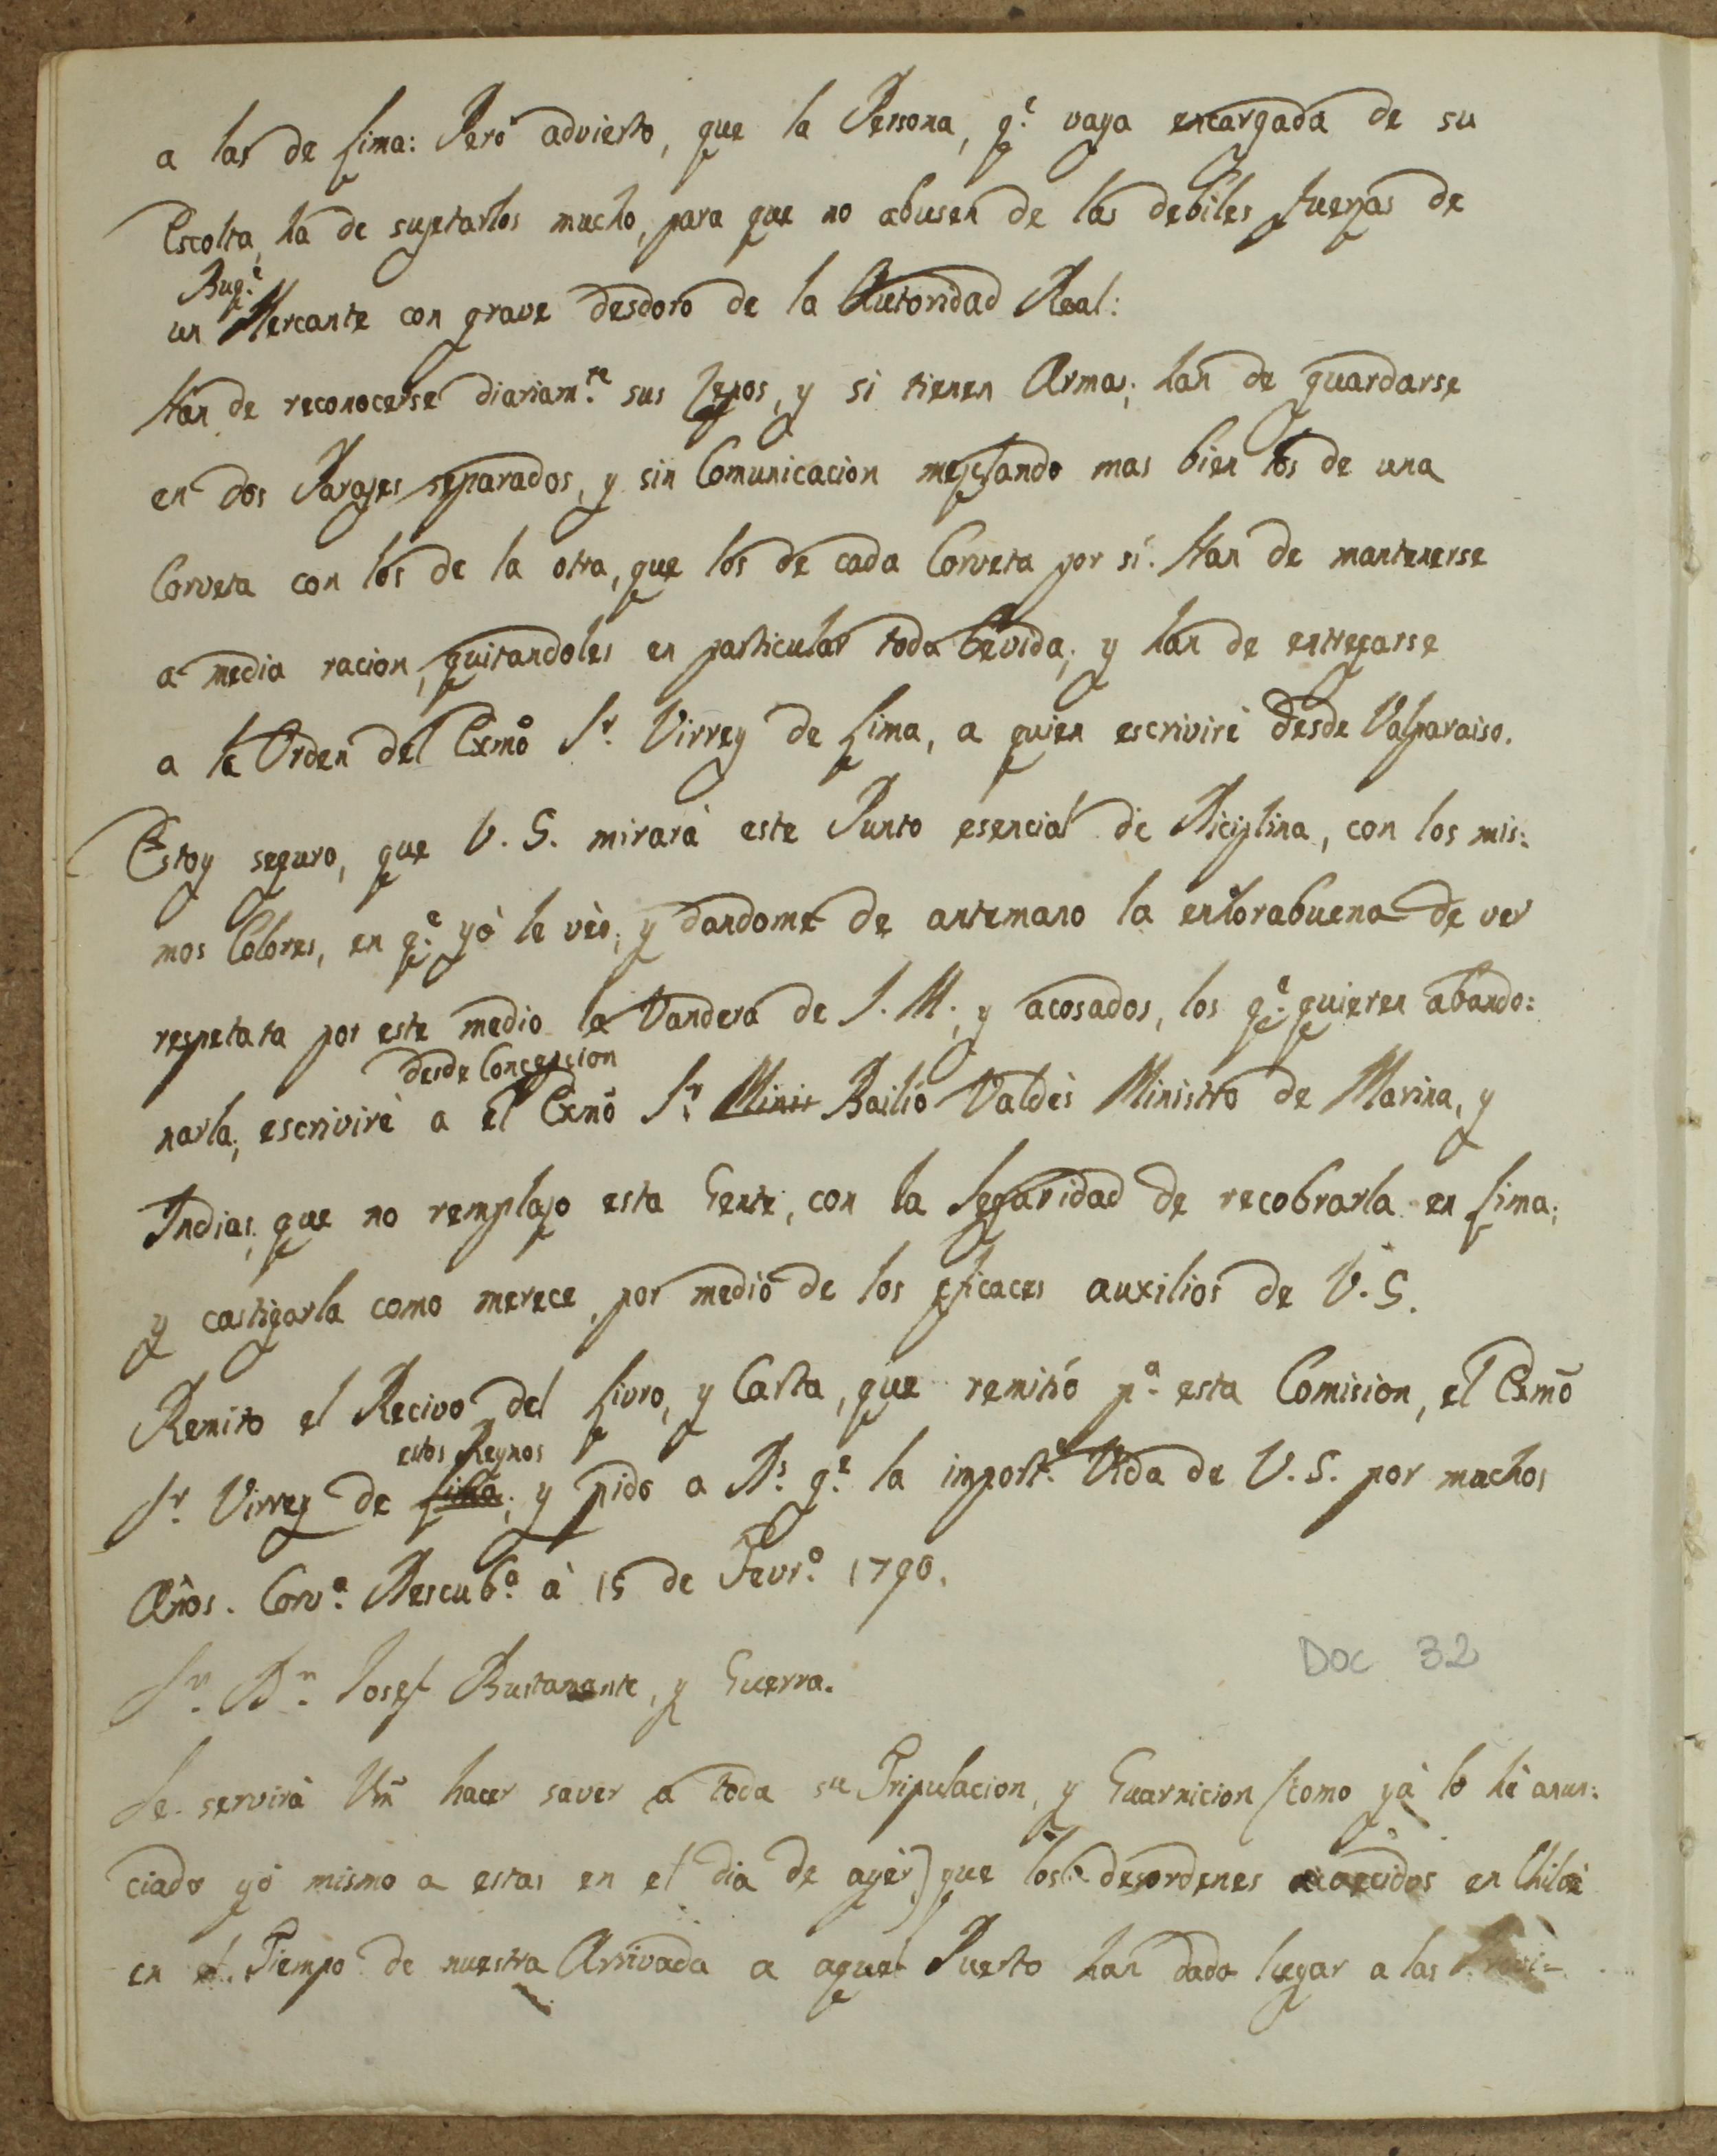 a las de Lima: Pero advierto, que la Persona, q.e vaya encargada de su
Escolta, ha de sugetarlos mucho, para que no abusen de las debiles fuerzas de
Buq.e
un Mercante con grave desdoro de la Autoridad Real:
Han de reconocerse diariam.te sus Cepos, y si tienen Armas; han de guardarse
en dos Parages separados, y sin Comunicacion mezclando mas bien los de una
Corveta con los de la otra, que los de cada Corveta por sí. Han de mantenerse
a media racion, quitandoles en particular toda bevida; y han de entregarse
a la Orden del Exmo S.r Virrey de Lima, a quien escriviré desde Valparaiso.
Estoy seguro, que V. S. mirará este Punto esencial de Diciplina, con los mis:
mos Colores, en q.e yó le véo; y dandome de antemano la enhorabuena de ver
respetata por este medio la Vandera de S. M., y acosados, los q.e quieren abando:
desde Concepcion
narla; escriviré a el Exmo S.r Minis Bailio Valdés Ministro de Marina, y
Indias; que no remplazo esta Gente, con la Seguridad de recobrarla en Lima;
y castigarla como merece, por medio de los eficaces auxilios de V. S.
Remito el Recivo del Livro, y Carta, que remitió p.a esta Comision, el Exmo
estos Reynos
S.r Virrey de Lima; y pido a D.s g.e la import.e Vida de V. S. por muchos
Años. Corv.a Descub.a á 15 de Fevr.o 1790.
S.r D.n Josef Bustamante, y Guerra.
Doc 32
Se servirá Vm hacer saver a toda su Tripulacion, y Guarnicion (como yá lo hé anun:
ciado yó mismo a estas en el dia de ayér) que los desordenes acaecidos en Chiloé
en el Tiempo de nuestra Arrivada a aquel Puerto han dado lugar a las